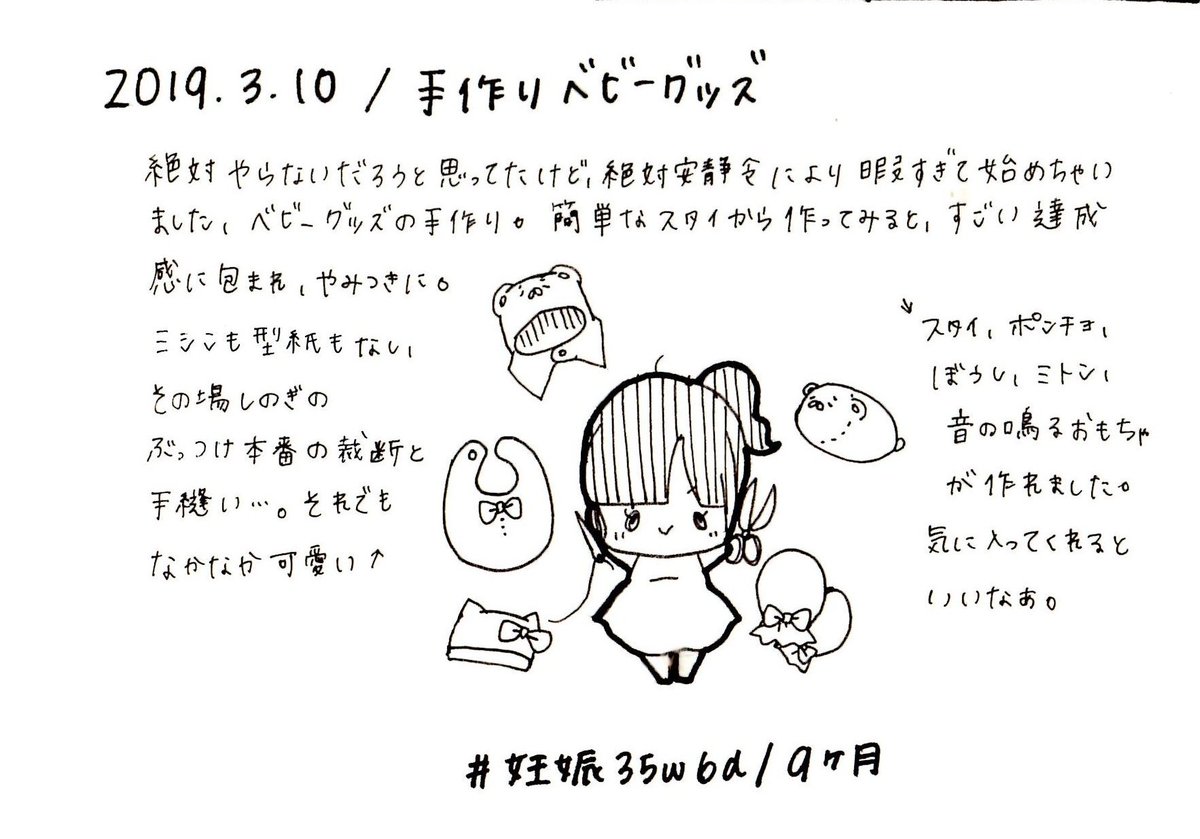 2019.3.10 / 手作りベビーグッズ
絶対やらないだろうと思ってたけど、絶対安静令により暇すぎて始めちゃい
ました、ベビーグッズの手作り。簡単なスタイから作ってみると、すごい達成
感に包まれ、やみつきに。
ミシンも型紙もない、
その場しのぎの
ぶっつけ本番の裁断と
手縫い…。それでも
なかなか可愛い↑
↘スタイ、ポンチョ、
ぼうし、ミトン、
音の鳴るおもちゃ
が作れました。
気に入ってくれると
いいなぁ。
#妊娠35w6d/9ヶ月